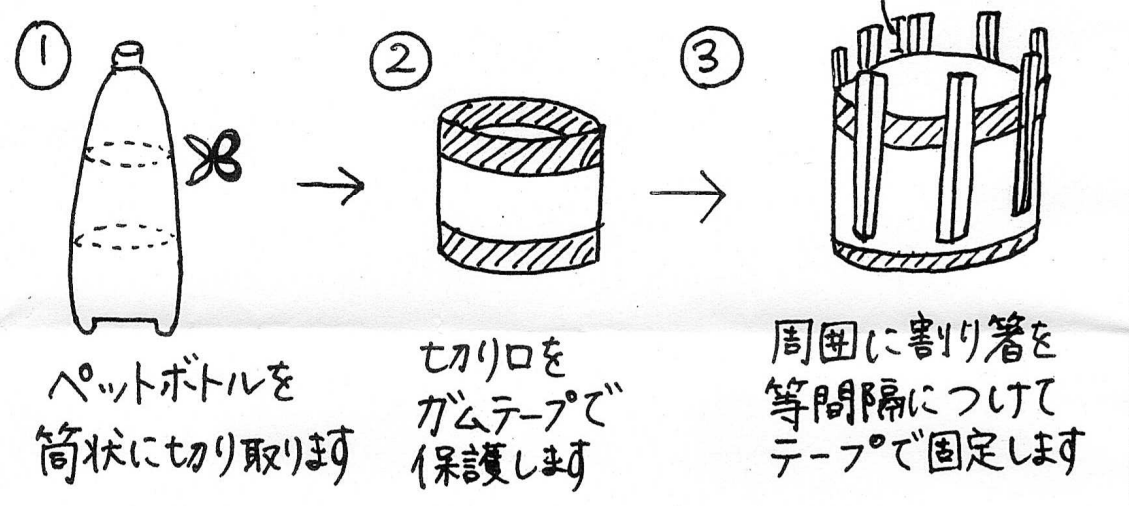 ①
ペットボトルを
筒状に切り取ります
②
切り口を
ガムテープで
保護します
③
周囲に割り箸を
等間隔につけて
テープで固定します